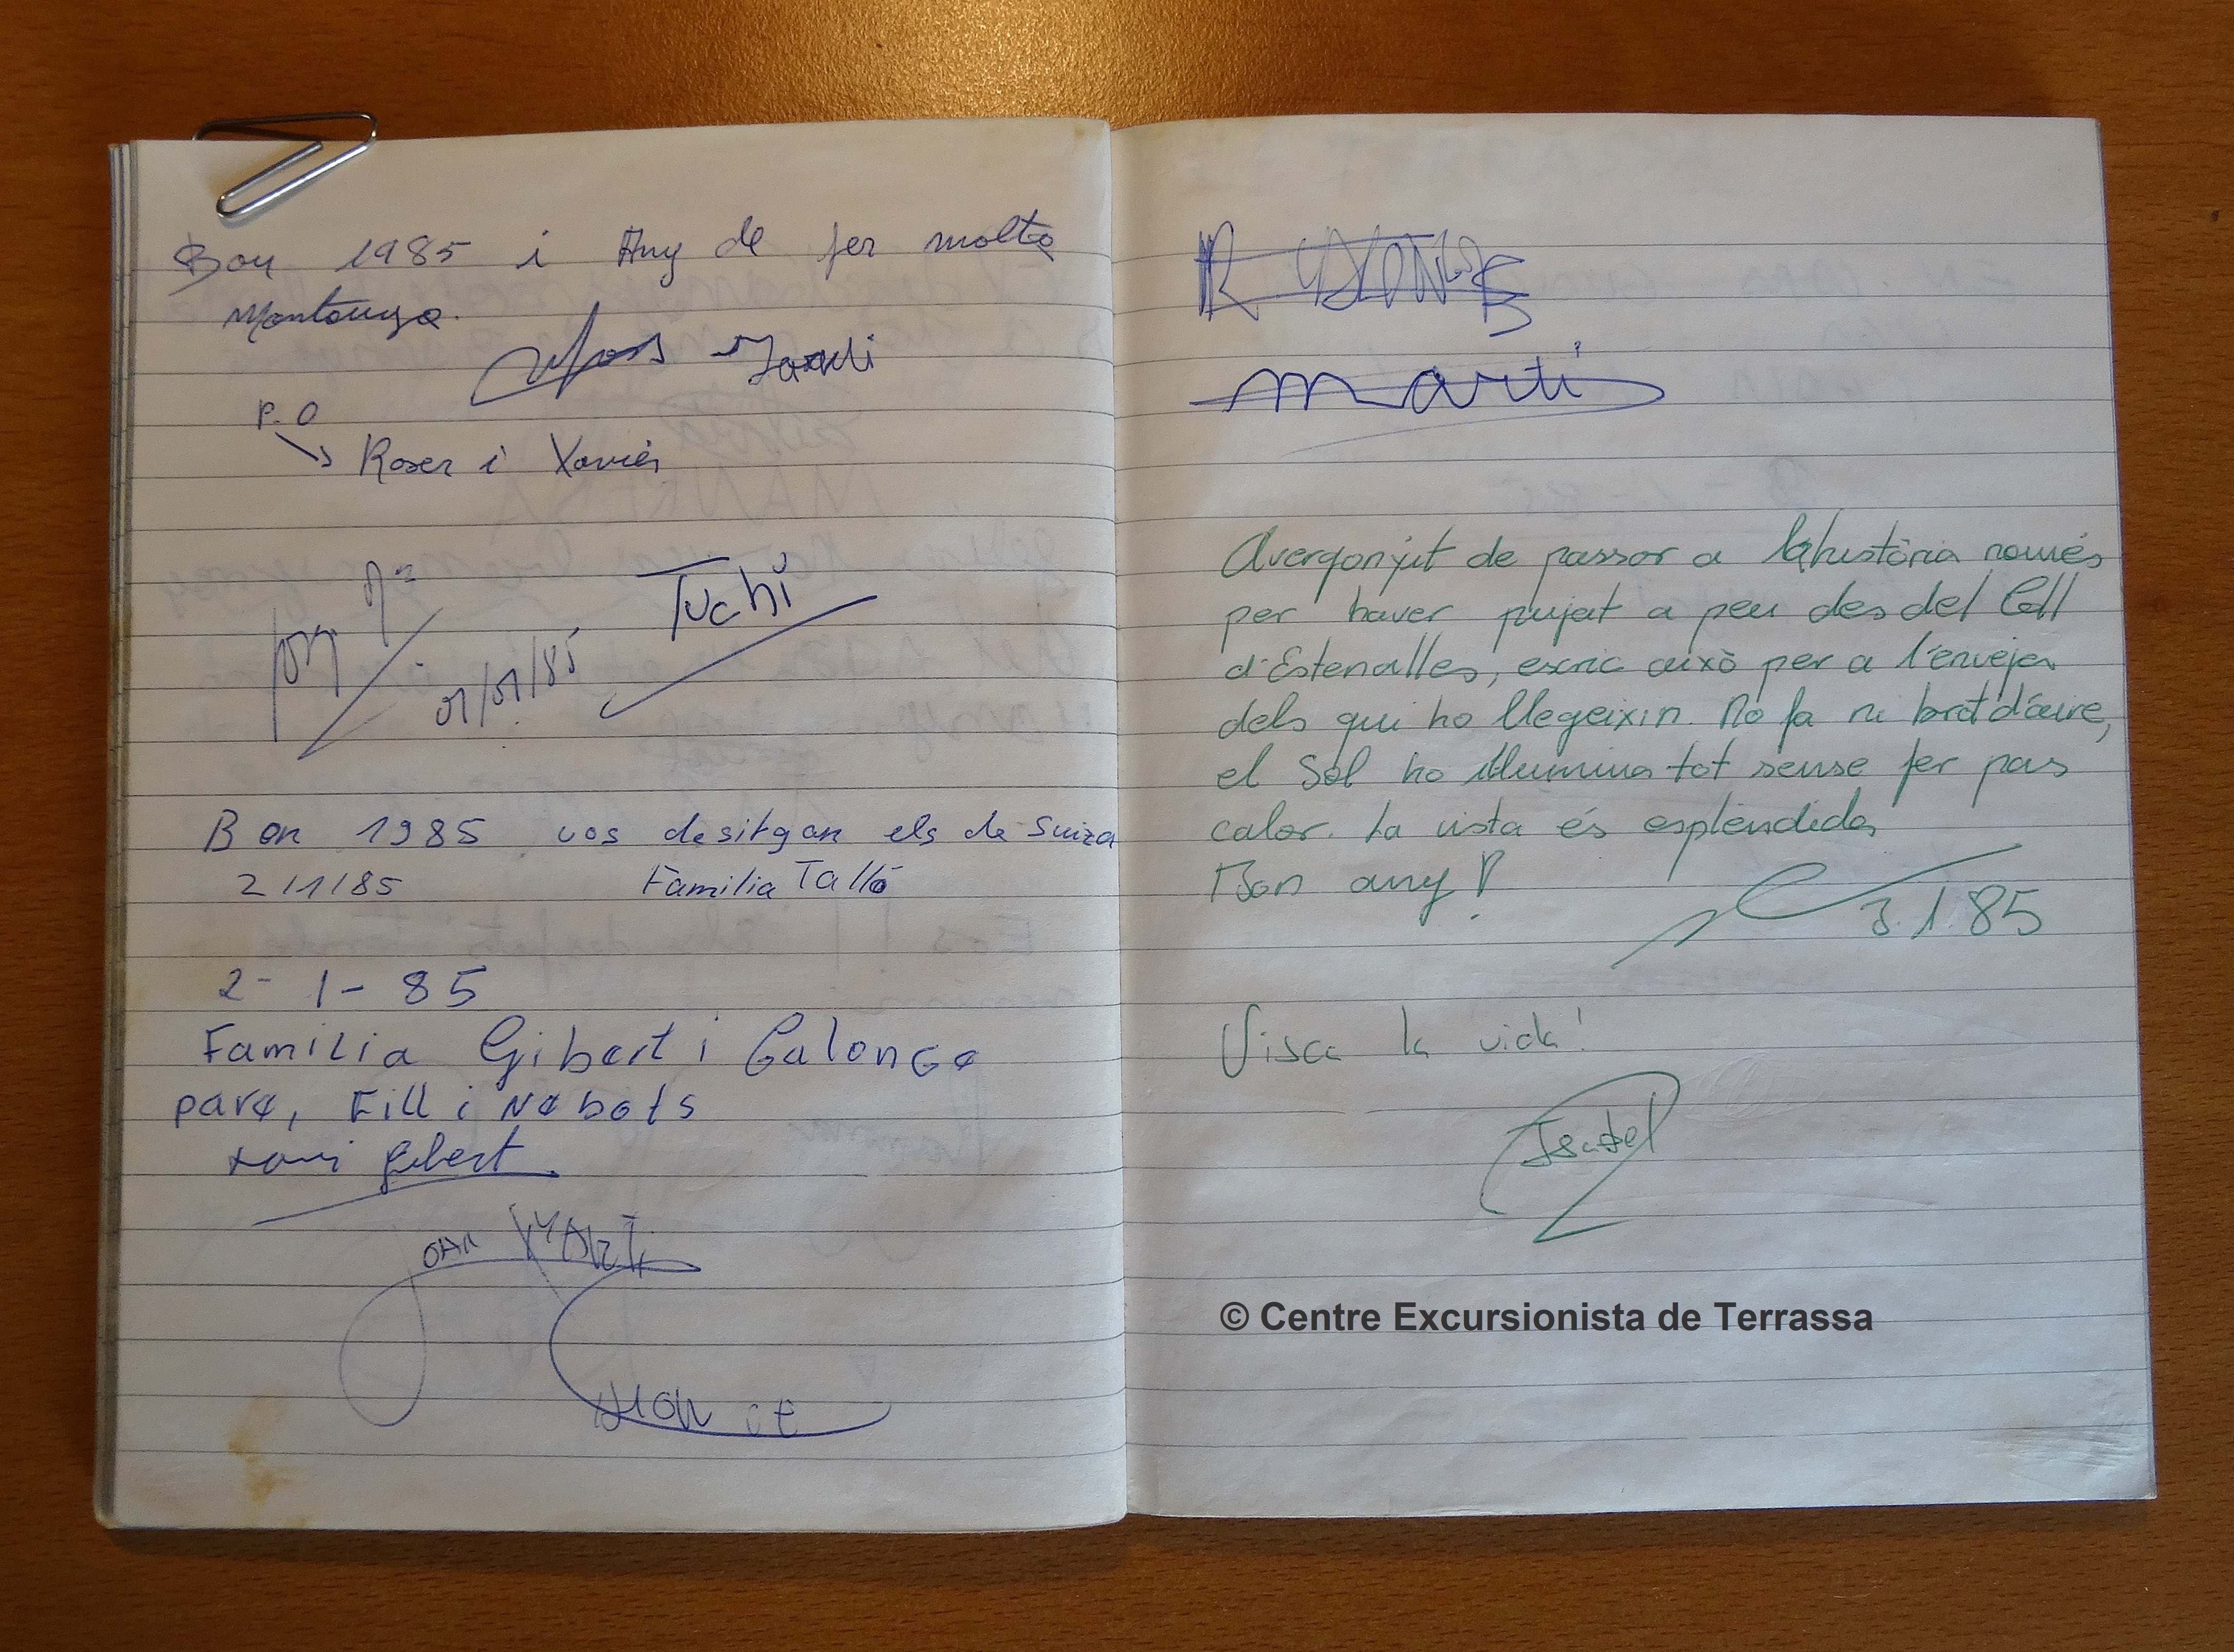 Bon 1985 i Any de fer molta
Montanya.
P.O
Roser i Xavier
01/01/85
Tuchi
Bon 1985 vos desitgan els de Suiza
2/1/85 Familia Talló
2-1-85
Familia Gibert i Galonge
pare, Fill i Nebots
Gibert
Joan Martí
Martí
Avergonyit de passar a la història només
per haver pujat a peu des del Coll
d'Estenalles, escric això per a l'enveja
dels qui ho llegeixin. No fa ni brot d'aire,
el Sol ho il·lumina tot sense fer pas
calor. La vista és esplèndida
Bon any!
3.1.85
Visca la vida!
Isabel
© Centre Excursionista de Terrassa